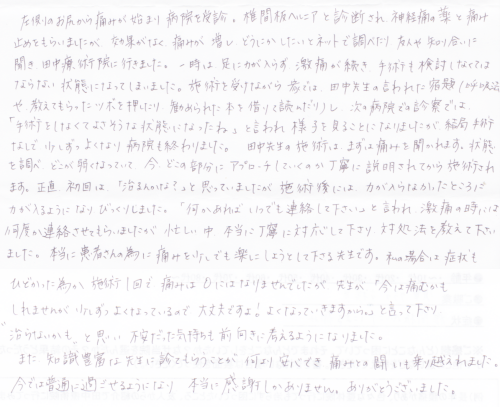 左側のお尻から痛みが始まり病院を受診。椎間板ヘルニアと診断され、神経痛の薬と痛み
止めをもらいましたが、効果がなく痛みが増し どうにかしたいとネットで調べたり 友人や知り合いに
聞き 田中療術院に行きました。一時は足に力が入らず 激痛が続き 手術も検討しなくては
ならない状態になってしまいました。施術を受けながら 家では、田中先生の言われた宿題(呼吸法
や 教えてもらったツボを押したり 勧められた本を借りて読んだり)し、次の病院での診察では
「手術をしなくてよさそうな状態になったね」と言われ 様子を見ることになりましたが 結局手術
なしで少しずつよくなり 病院も終わりました。 田中先生の施術は、まずは痛みを聞かれます。状態
を調べ どこが弱くなっていて 今、どこの部分にアプローチしていくのか 丁寧に説明されてから施術され
ます。正直 初回は、「治るんかな?」と思っていましたが 施術後には 力が入らなかったところに
力が入るようになり びっくりしました。「何かあれば いつでも連絡して下さい」と言われ、激痛の時には
何度か連絡させてもらいましたが 忙しい中 本当に丁寧に対応して下さり 対処法を教えて下さい
ました。本当に患者さんの為に 痛みを少しでも楽にしようとして下さる先生です。私の場合は症状も
ひどかった為か 施術1回で 痛みは0にはなりませんでしたが 先生が「今は痛むかも
しれませんが 少しずつよくなっているので 大丈夫ですよ!よくなっていきますから。」と言って下さり、
"治らないかも"と思い 不安だった気持ちも 前向きに考えるようになりました。
また 知識豊富な先生に診てもらうことが 何より安心でき 痛みとの闘いも乗り越えれました。
今では普通に過ごせるようになり 本当に感謝しかありません。ありがとうございました。